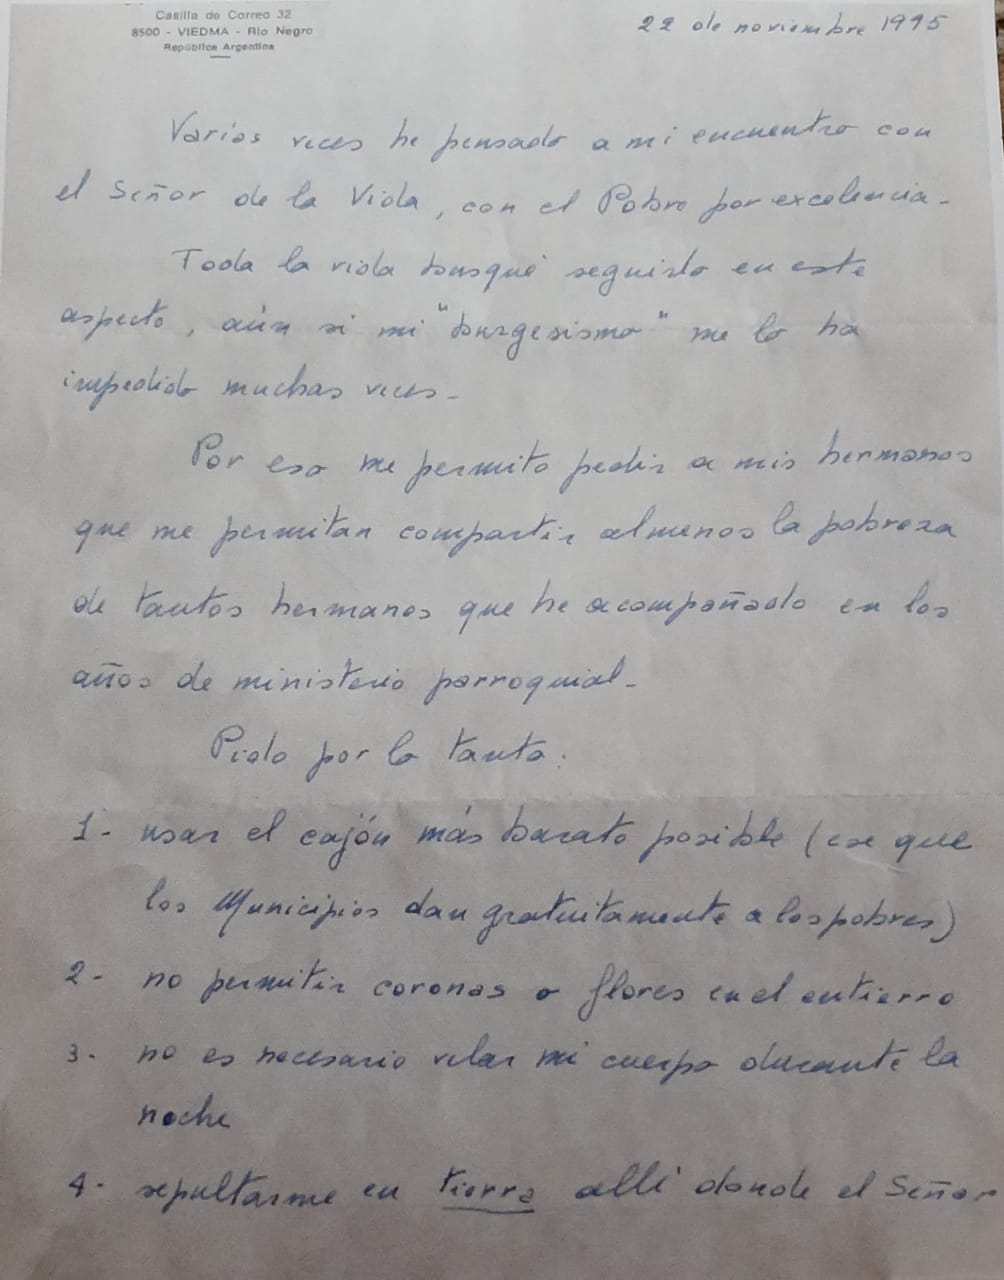 Casilla de Correo 32
8500 - VIEDMA - Río Negro
República Argentina
22 de noviembre 1995
Varias veces he pensado a mi encuentro con
el Señor de la Vida, con el Pobre por excelencia.
Toda la vida busqué seguirlo en este
aspecto, aún si mi "burgesismo" me lo ha
impedido muchas veces.
Por eso me permito pedir a mis hermanos
que me permitan compartir almenos la pobreza
de tantos hermanos que he acompañado en los
años de ministerio parroquial.
Pido por lo tanto:
1- usar el cajón más barato posible (ese que
los Municipios dan gratuitamente a los pobres)
2- no permitir coronas o flores en el entierro
3- no es necesario velar mi cuerpo durante la
noche
4- sepultarme en tierra allí donde el Señor